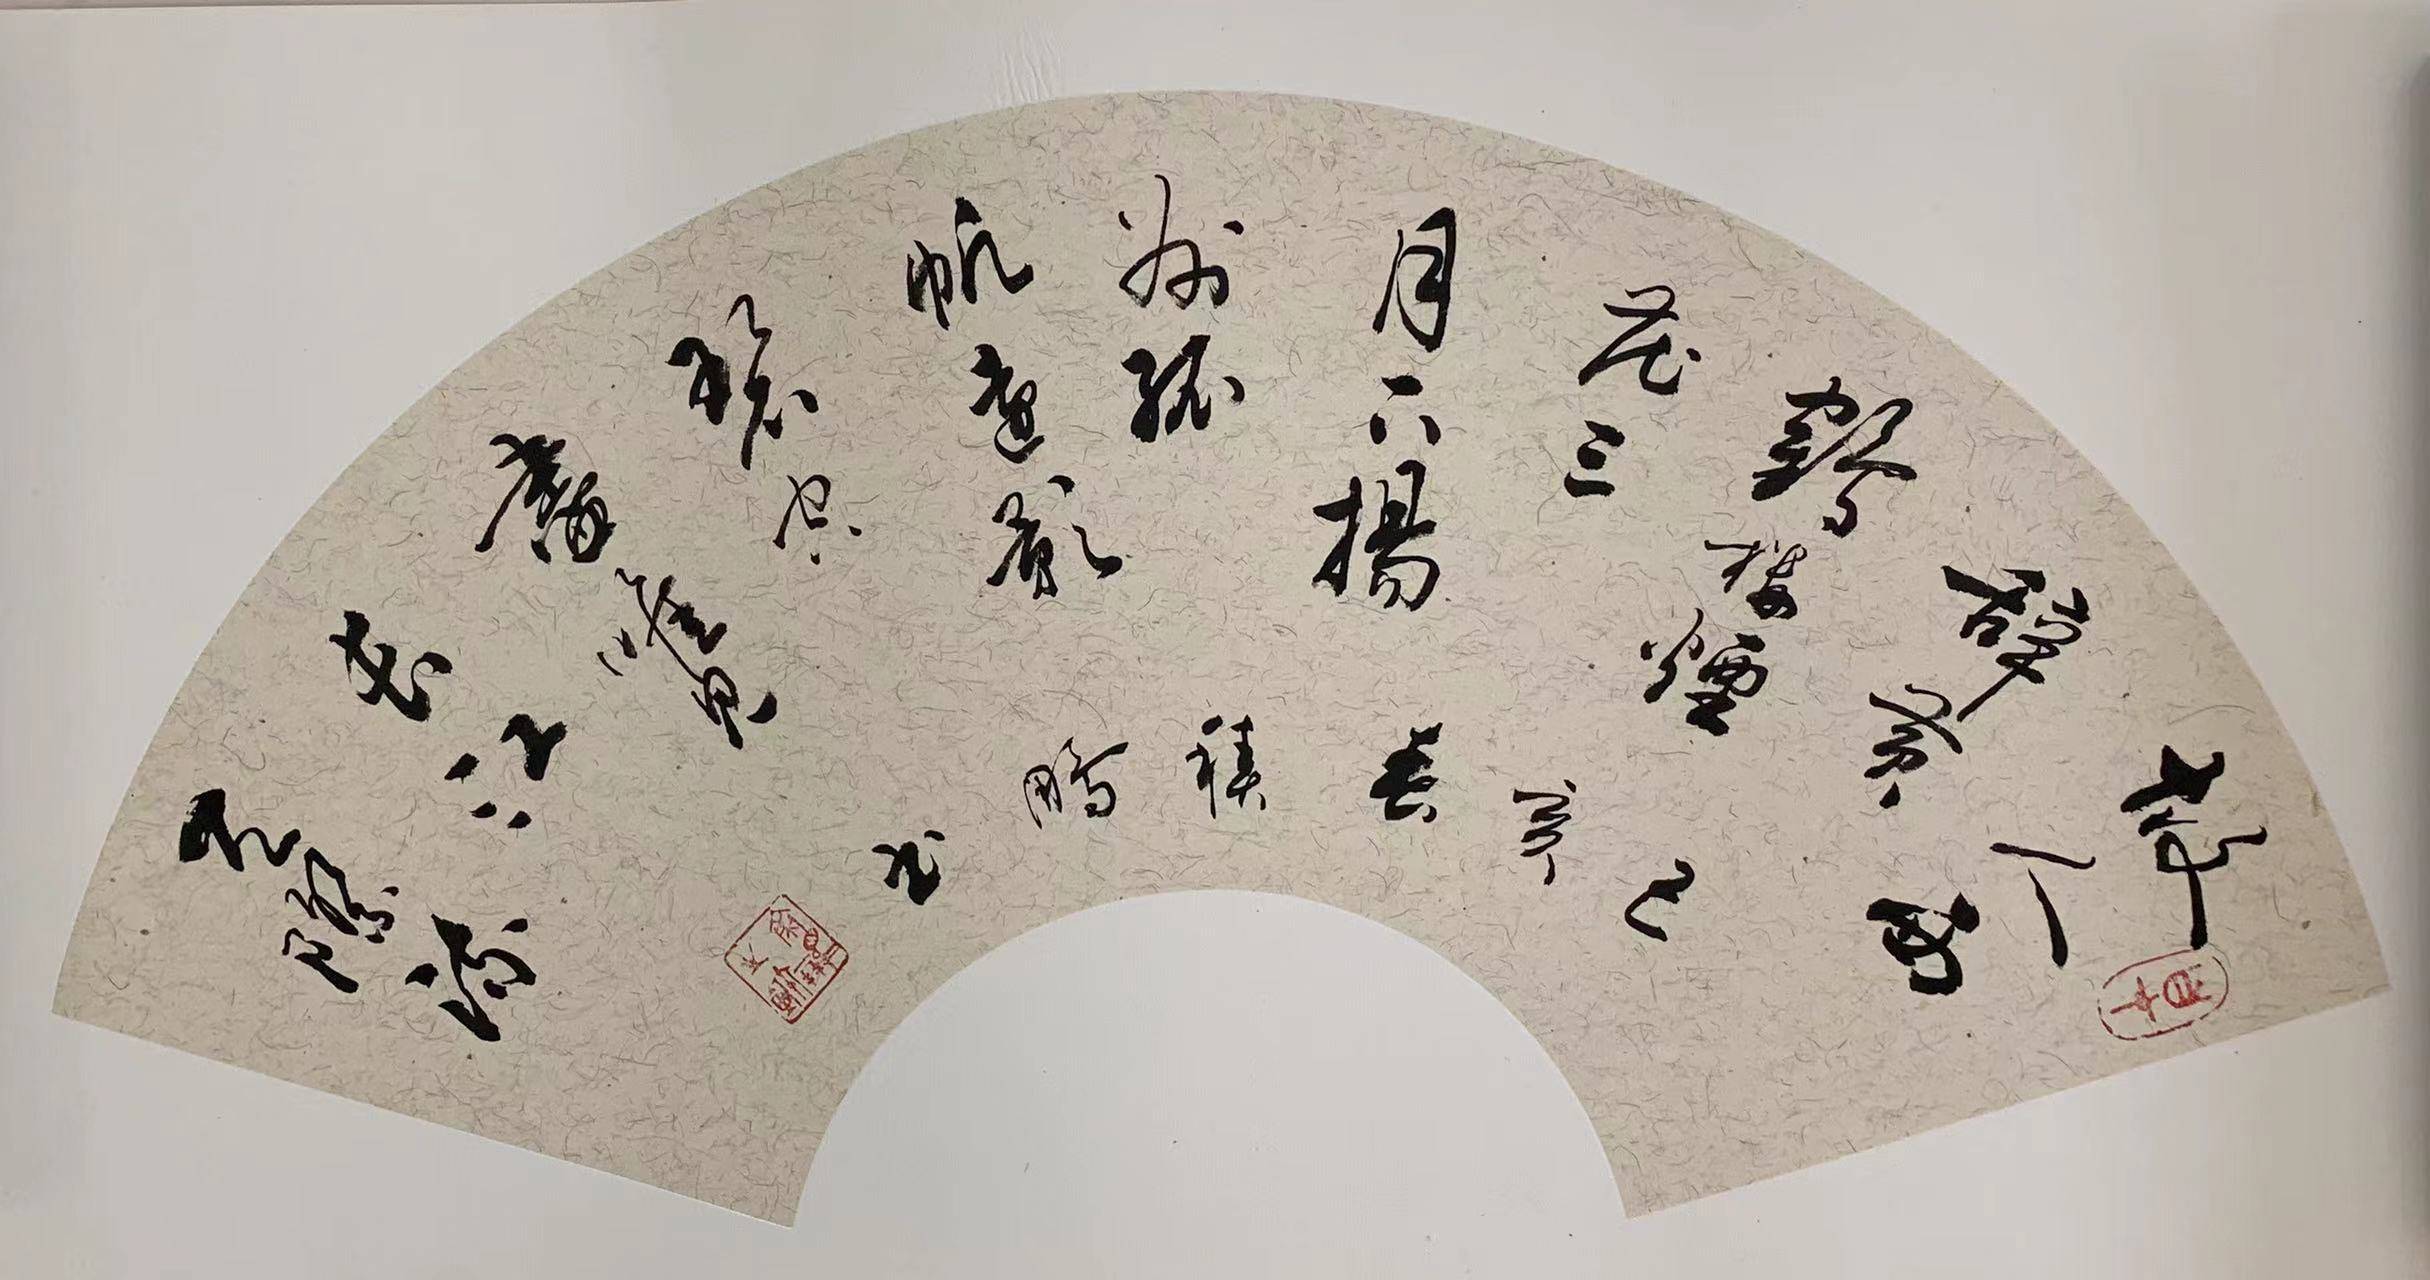 故人西
辭黄
鶴樓煙
花三
月下揚
州孤
帆遠影
碧空
盡唯見
長江
天際流
己亥春積鵬书